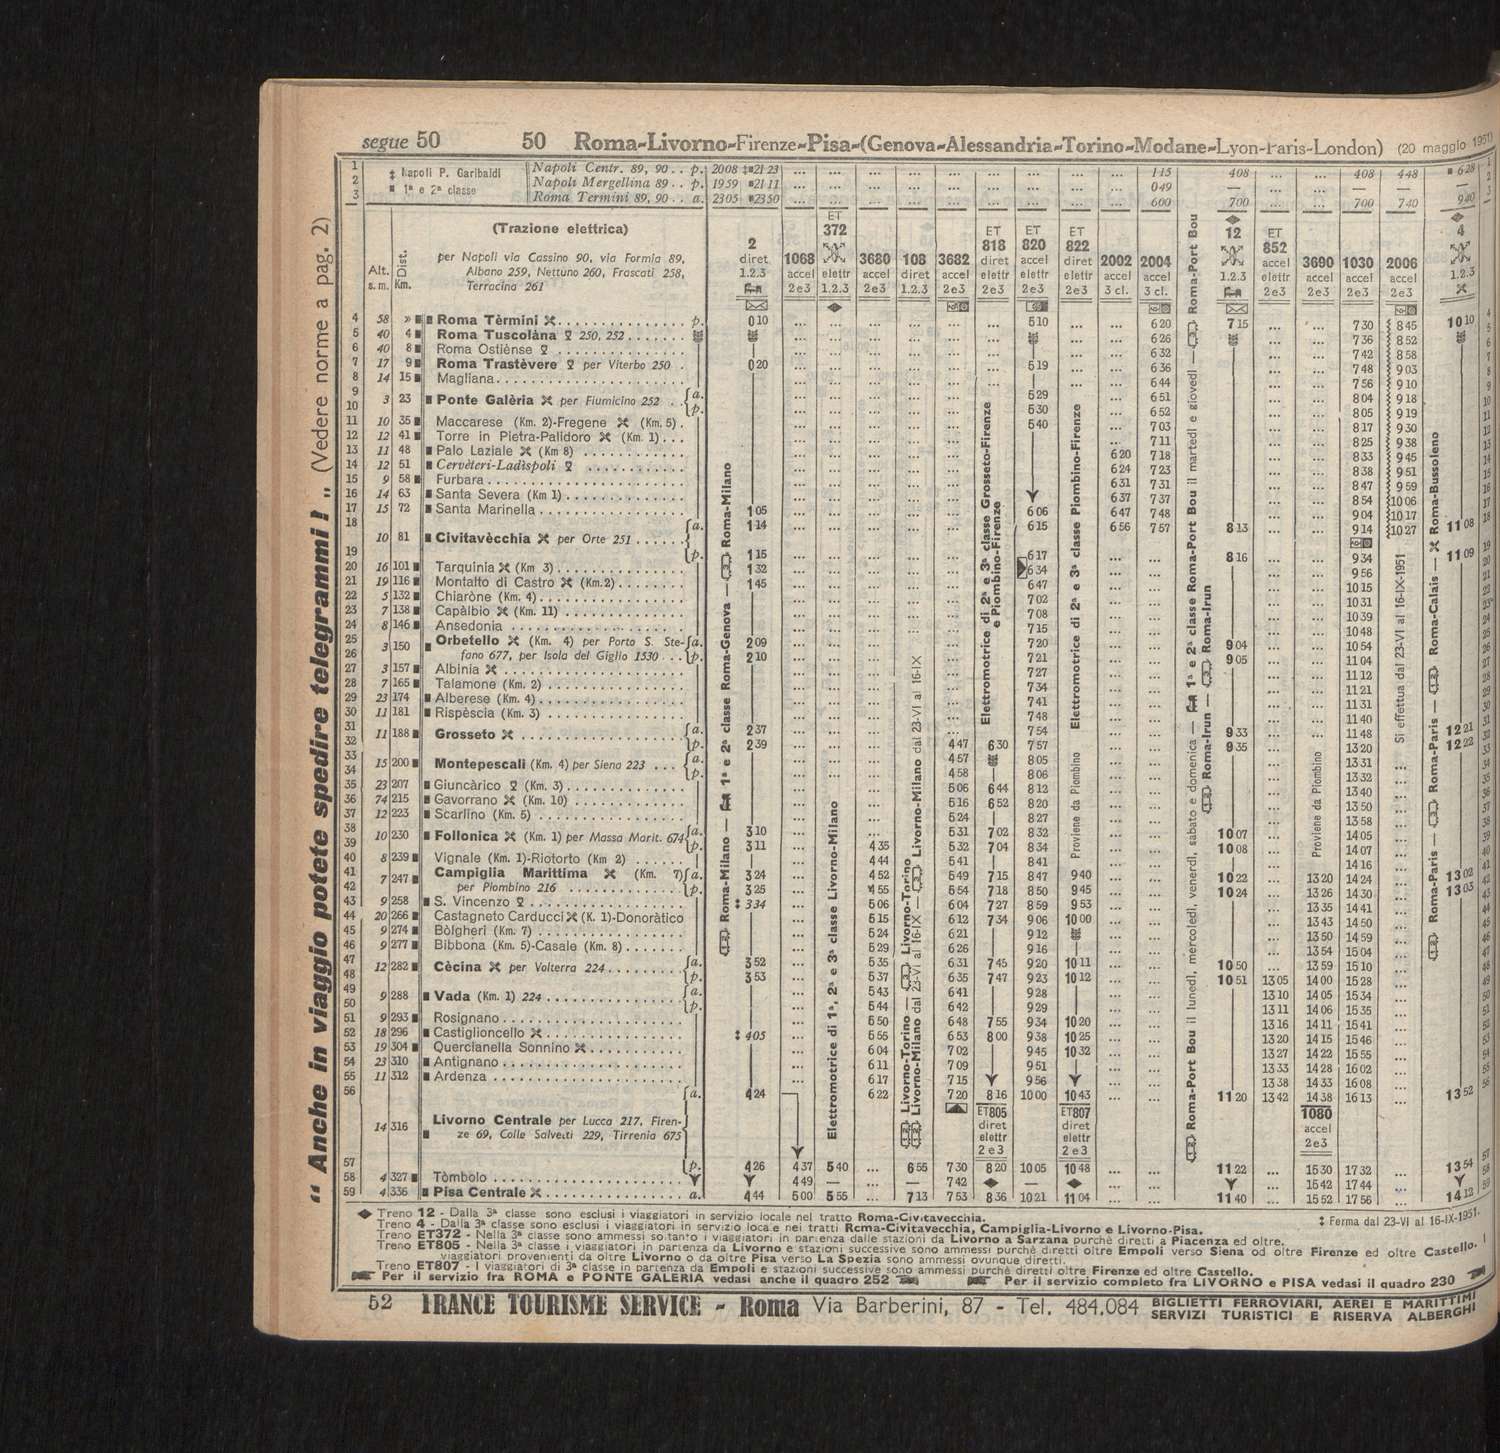 segue 50 50 Roma-Livorno-Firenze-Pisa-(Genova-Alessandria-Torino-Modane-Lyon-Paris-London) (20 maggio 1951)
1 ‡ Napoli P. Garibaldi Napoli Centr. 89, 90 . . p. 2008 ‡■21 23 ... ... ... ... ... ... ... ... ... 115 408 ... ... 408 448 ■ 628 1
2 ■ 1ª e 2ª classe Napoli Mergellina 89 . . p. 1959 ■21 11 ... ... ... ... ... ... ... ... ... 049 — ... ... — — — 2
3 Roma Termini 89, 90 . . a. 2305 ■2350 ... ... ... ... ... ... ... ... ... 600 700 ... ... 700 740 940 3
Alt. s. m.
Dist. Km.
(Trazione elettrica)
per Napoli via Cassino 90, via Formia 89,
Albano 259, Nettuno 260, Frascati 258,
Terracina 261
2 diret 1.2.3
1068 accel 2e3
ET 372 elettr 1.2.3
3680 accel 2e3
108 diret 1.2.3
3682 accel 2e3
ET 818 diret elettr 2e3
ET 820 accel elettr 2e3
ET 822 diret elettr 2e3
2002 accel 3 cl.
2004 accel 3 cl.
12 1.2.3
ET 852 accel elettr 2e3
3690 accel 2e3
1030 accel 2e3
2006 accel 2e3
4 1.2.3
4 58 » Roma Tèrmini . . . p. 010 510 620 715 730 845 1010
5 40 4 Roma Tuscolàna 250, 252 . . . 626 736 852
6 40 8 Roma Ostiènse . . . 632 742 858
7 17 9 Roma Trastèvere per Viterbo 250 . 020 519 636 748 903
8 14 15 Magliana . . . 644 756 910
9 3 23 Ponte Galèria per Fiumicino 252 . . a. 529 651 804 918
10 p. 530 652 805 919
11 10 35 Maccarese (Km. 2)-Fregene (Km. 5) . 540 703 817 930
12 12 41 Torre in Pietra-Palidoro (Km. 1) . . . 711 825 938
13 11 48 Palo Laziale (Km 8) . . . 620 718 833 945
14 12 51 Cervèteri-Ladìspoli . . . 624 723 838 951
15 9 58 Furbara . . . 631 731 847 959
16 14 63 Santa Severa (Km 1) . . . 637 737 854 1006
17 15 72 Santa Marinella . . . 105 606 647 748 904 1017
18 10 81 Civitavècchia per Orte 251 . . . a. 114 615 656 757 813 914 1027 1108
19 p. 115 617 816 934 1109
20 16 101 Tarquinia (Km 3) . . . 132 634 956
21 19 116 Montalto di Castro (Km.2) . . . 145 647 1015
22 5 132 Chiaròne (Km. 4) . . . 702 1031
23 7 138 Capàlbio (Km. 11) . . . 708 1039
24 8 146 Ansedonia . . . 715 1048
25 3 150 Orbetello (Km. 4) per Porto S. Ste- a. 209 720 904 1054
26 fano 677, per Isola del Giglio 1530 . . . p. 210 721 905 1104
27 3 157 Albinia . . . 727 1112
28 7 165 Talamone (Km. 2) . . . 734 1121
29 23 174 Alberese (Km. 4) . . . 741 1131
30 11 181 Rispèscia (Km. 3) . . . 748 1140
31 11 188 Grosseto . . . a. 237 754 933 1148 1221
32 p. 239 447 630 757 935 1320 1222
33 15 200 Montepescali (Km. 4) per Siena 223 . . . a. 457 805 1331
34 p. 458 806 1332
35 23 207 Giuncàrico (Km. 3) . . . 506 644 812 1340
36 74 215 Gavorrano (Km. 10) . . . 516 652 820 1350
37 12 223 Scarlino (Km. 5) . . . 524 827 1358
38 10 230 Follonica (Km. 1) per Massa Marit. 674 a. 310 531 702 832 1007 1405
39 p. 311 435 532 704 834 1008 1407
40 8 239 Vignale (Km. 1)-Riotorto (Km 2) . . . 444 541 841 1416
41 7 247 Campiglia Marittima (Km. 7) a. 324 452 549 715 847 940 1022 1320 1424 1302
42 per Piombino 216 . . . p. 325 455 554 718 850 945 1024 1326 1430 1303
43 9 258 S. Vincenzo . . . ‡ 334 506 604 727 859 953 1335 1441
44 20 266 Castagneto Carducci (K. 1)-Donoràtico 515 612 734 906 1000 1343 1450
45 9 274 Bòlgheri (Km. 7) . . . 524 621 912 1350 1459
46 9 277 Bibbona (Km. 5)-Casale (Km. 8) . . . 529 626 916 1354 1504
47 12 282 Cècina per Volterra 224 . . . a. 352 535 631 745 920 1011 1050 1359 1510
48 p. 353 537 635 747 923 1012 1051 1305 1400 1528
49 9 288 Vada (Km. 1) 224 . . . a. 543 641 928 1310 1405 1534
50 p. 544 642 929 1311 1406 1535
51 9 293 Rosignano . . . 550 648 755 934 1020 1316 1411 1541
52 18 296 Castiglioncello . . . ‡ 405 555 653 800 938 1025 1320 1415 1546
53 19 304 Quercianella Sonnino . . . 604 702 945 1032 1327 1422 1555
54 23 310 Antignano . . . 611 709 951 1333 1428 1602
55 11 312 Ardenza . . . 617 715 956 1338 1433 1608
56 a. 424 622 720 816 1000 1043 1120 1342 1438 1613 1352
14 316 Livorno Centrale per Lucca 217, Firen-
ze 69, Colle Salvetti 229, Tirrenia 675
ET805 diret elettr 2e3
ET807 diret elettr 2e3
1080 accel 2e3
57 p. 426 437 540 ... 655 730 820 1005 1048 1122 1530 1732 1354
58 4 327 Tòmbolo . . . 449 — — 742 — 1542 1744
59 4 336 Pisa Centrale . . . a. 444 500 555 ... 713 753 836 1021 1104 1140 1552 1756 1412
Roma-Milano — 1ª e 2ª classe Roma-Genova — Roma-Milano
Elettromotrice di 1ª, 2ª e 3ª classe Livorno-Milano
Livorno-Torino — Livorno-Torino
Livorno-Milano dal 23-VI al 16-IX — Livorno-Milano dal 23-VI al 16-IX
Elettromotrice di 2ª e 3ª classe Grosseto-Firenze
e Piombino-Firenze
Elettromotrice di 2ª e 3ª classe Piombino-Firenze
Proviene da Piombino
Roma-Port Bou il lunedì, mercoledì, venerdì, sabato e domenica — 1ª e 2ª classe Roma-Port Bou il martedì e giovedì — Roma-Port Bou
Roma-Irun — Roma-Irun
Proviene da Piombino
Si effettua dal 23-VI al 16-IX-1951
Roma-Paris — Roma-Paris — Roma-Calais — Roma-Bussoleno
" Anche in viaggio potete spedire telegrammi ! " (Vedere norme a pag. 2)
Treno 12 - Dalla 3ª classe sono esclusi i viaggiatori in servizio locale nel tratto Roma-Civitavecchia. ‡ Ferma dal 23-VI al 16-IX-1951.
Treno 4 - Dalla 3ª classe sono esclusi i viaggiatori in servizio locale nei tratti Roma-Civitavecchia, Campiglia-Livorno e Livorno-Pisa.
Treno ET372 - Nella 3ª classe sono ammessi soltanto i viaggiatori in partenza dalle stazioni da Livorno a Sarzana purchè diretti a Piacenza ed oltre.
Treno ET805 - Nella 3ª classe i viaggiatori in partenza da Livorno e stazioni successive sono ammessi purchè diretti oltre Empoli verso Siena od oltre Firenze ed oltre Castello. I
viaggiatori provenienti da oltre Livorno o da oltre Pisa verso La Spezia sono ammessi ovunque diretti.
Treno ET807 - I viaggiatori di 3ª classe in partenza da Empoli e stazioni successive sono ammessi purchè diretti oltre Firenze ed oltre Castello.
Per il servizio fra ROMA e PONTE GALERIA vedasi anche il quadro 252 Per il servizio completo fra LIVORNO e PISA vedasi il quadro 230
52 TRANCE TOURISME SERVICE - Roma Via Barberini, 87 - Tel. 484.084 BIGLIETTI FERROVIARI, AEREI E MARITTIMI
SERVIZI TURISTICI E RISERVA ALBERGHI